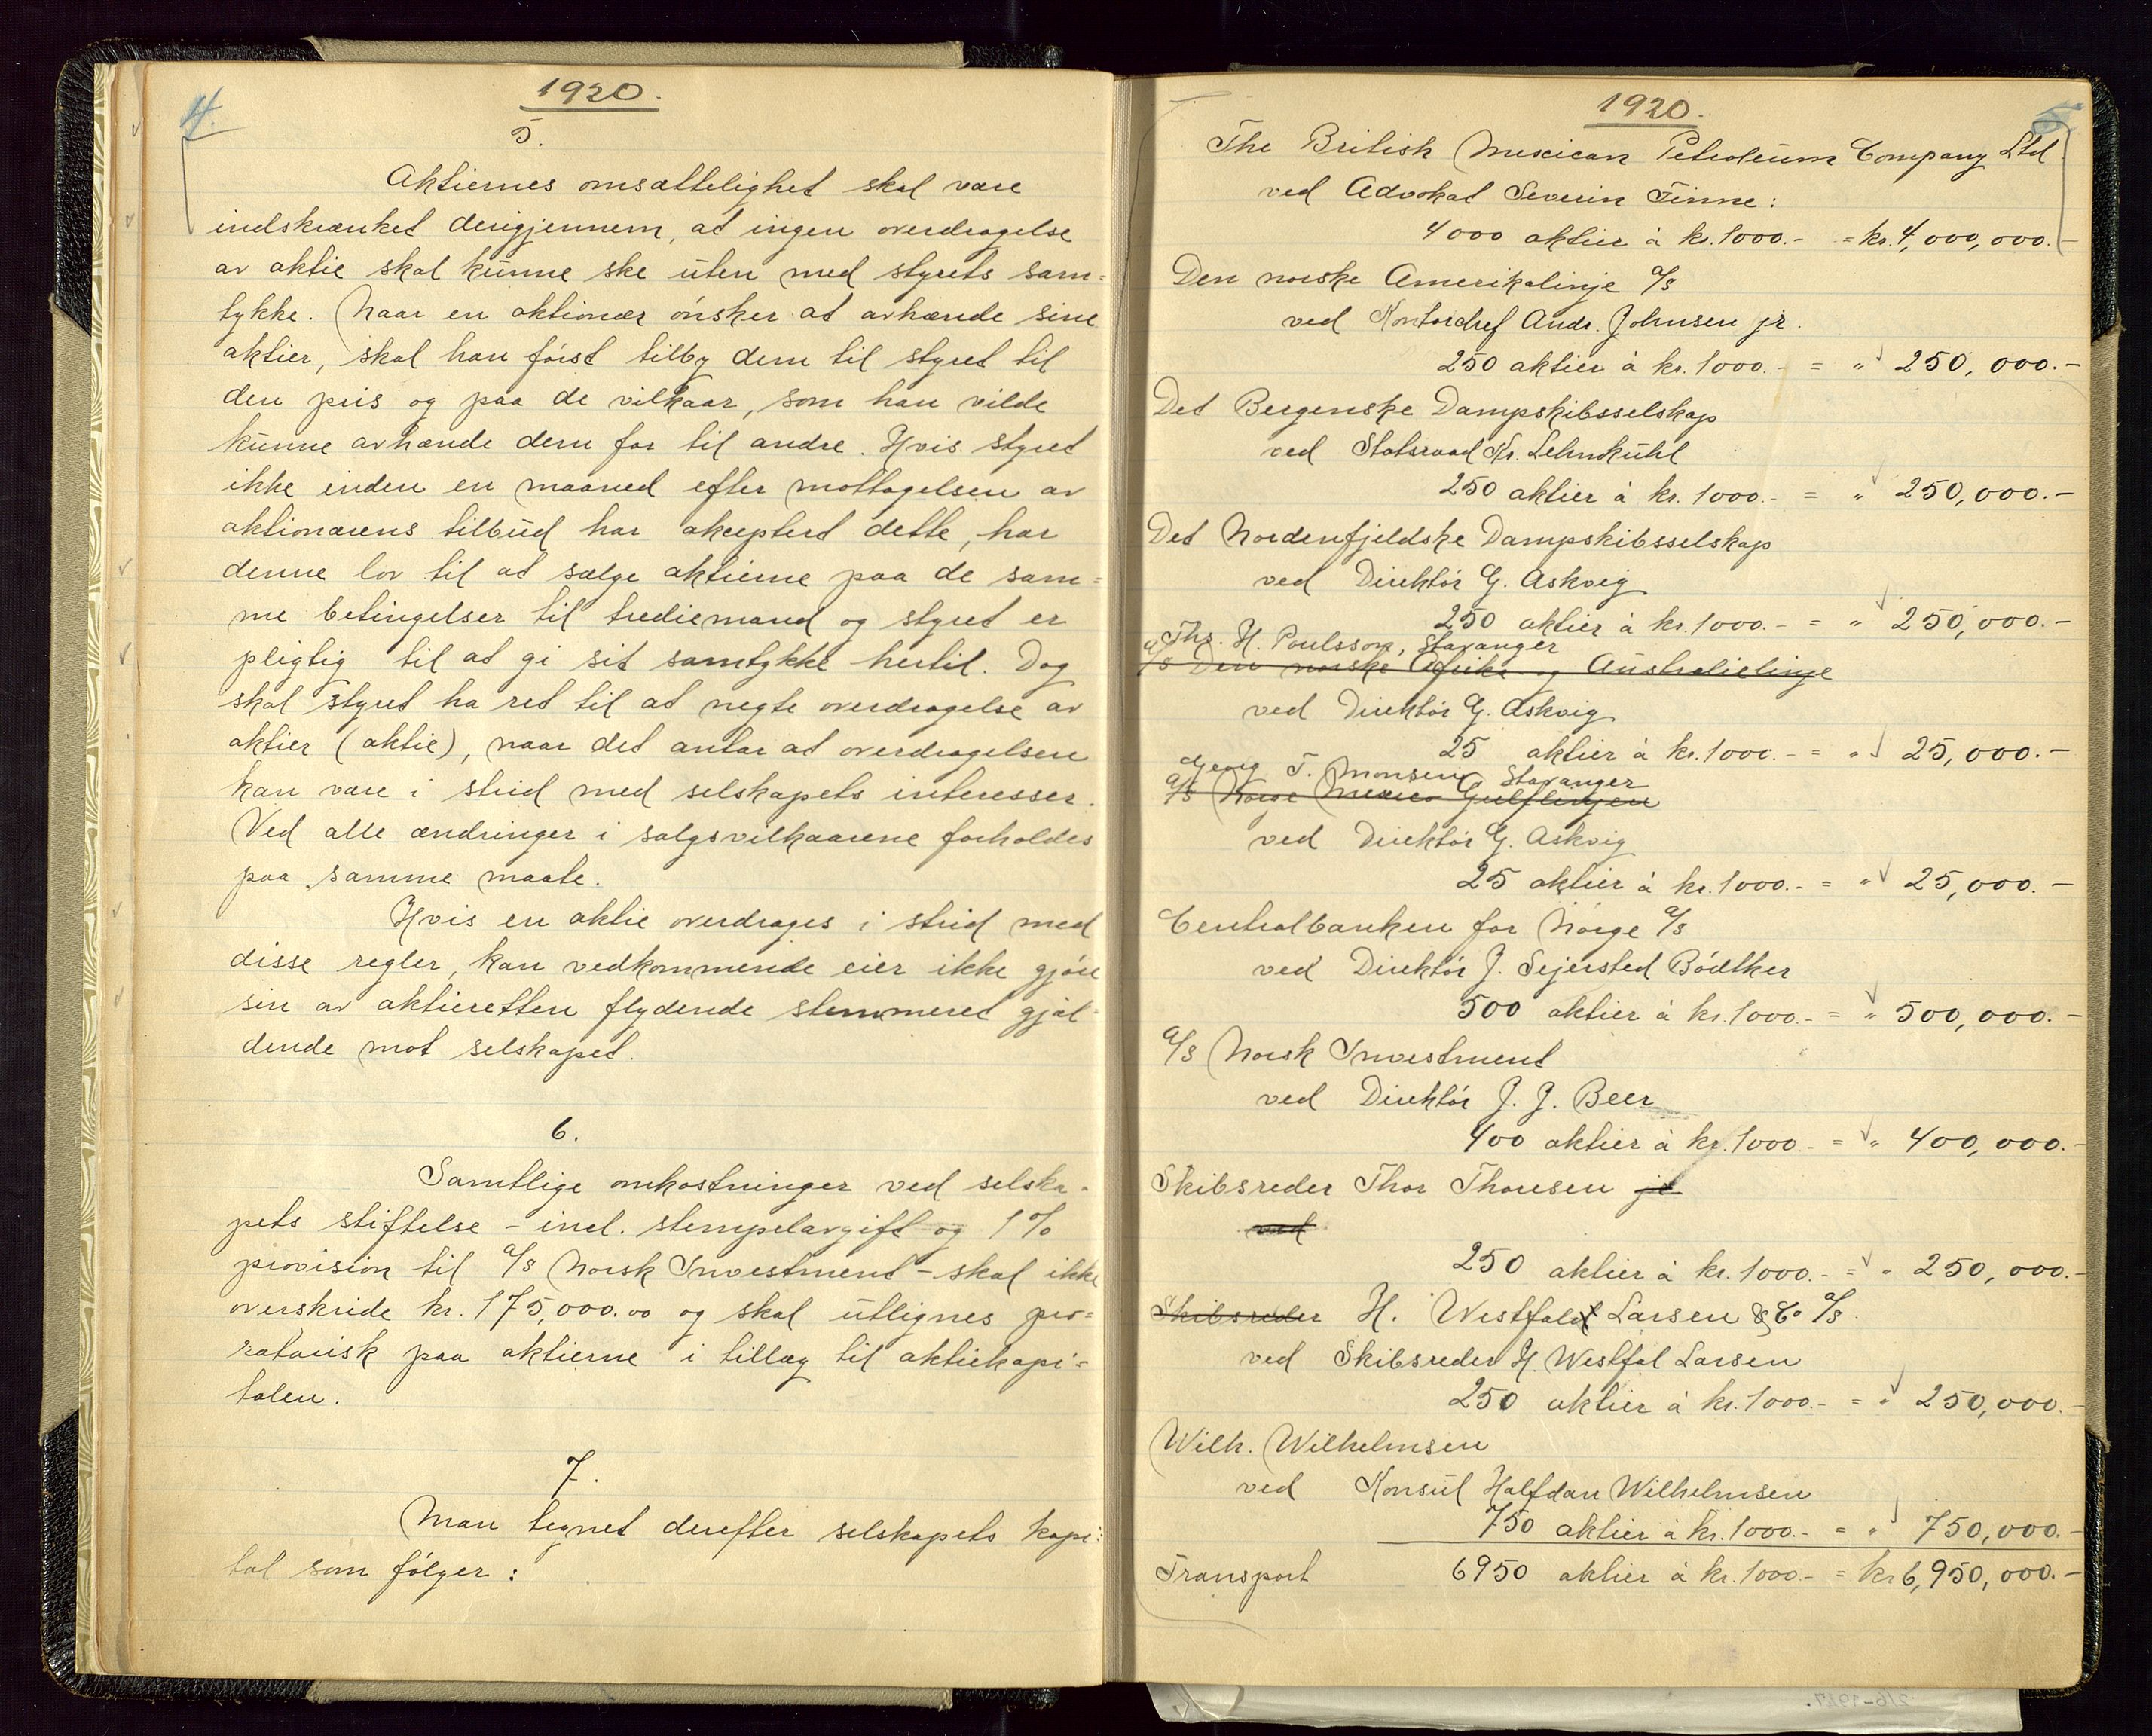 4.
1920.
5.
Aktiernes omsættelighet skal være
indskrænket derigjennem, at ingen overdragelse
av aktie skal kunne ske uten med styrets sam=
tykke. Naar en aktionær ønsker at avhænde sine
aktier, skal han først tilby dem til styret til
den pris og paa de vilkaar, som han vilde
kunne avhænde dem for til andre. Hvis styret
ikke inden en maaned efter mottagelsen av
aktionærens tilbud har aksepteret dette, har
denne lov til at sælge aktierne paa de sam=
me betingelser til trediemand og styret er
pligtig til at gi sit samtykke hertil. Dog
skal styret ha ret til at negte overdragelse av
aktier (aktie), naar det antar at overdragelsen
kan være i strid med selskapets interesser.
Ved alle ændringer i salgsvilkaarene forholdes
paa samme maate.
Hvis en aktie overdrages i strid med
disse regler, kan vedkommende eier ikke gjøre
sin av aktieretten flydende stemmeret gjæl-
dende mot selskapet.
6.
Samtlige omkostninger ved selska-
pets stiftelse - incl. stempelavgift og 1%
provision til A/S Norsk Investment - skal ikke
overskride kr. 175,000.00 og skal utlignes pro=
ratarisk paa aktierne i tillæg til aktiekapi=
talen.
7.
Man tegnet derefter selskapets kapi=
tal som følger:
1920.
The British Mexican Petroleum Company Ltd.
ved Advokat Severin Finne:
4000 aktier à kr. 1000.- = kr. 4,000,000.-
Den norske Amerikalinje A/S
ved Kontorchef Andr. Johnsen jr.
250 aktier à kr. 1000.- = " 250,000.-
Det Bergenske Dampskibsselskap
ved Statsraad Kr. Lehmkühl
250 aktier à kr. 1000.- = " 250,000.-
Det Nordenfjeldske Dampskibsselskap
ved Direktør G. Askvig
250 aktier à kr. 1000.- = " 250,000.-
Ths. H. Poulsson, Stavanger
A/S Den norske Afrika og Australielinje
ved Direktør G. Askvig
25 aktier à kr. 1000.- = " 25,000.-
Georg T. Monsen, Stavanger
A/S Norge Mexico Gulflinjen
ved Direktør G. Askvig
25 aktier à kr. 1000.- = " 25,000.-
Centralbanken for Norge A/S
ved Direktør J. Sejersted Bødtker
500 aktier à kr. 1000.- = " 500,000.-
A/S Norsk Investment
ved Direktør J. J. Beer
400 aktier à kr. 1000.- = " 400,000.-
Skibsreder Thor Thoresen jr
ved
250 aktier à kr. 1000.- = " 250,000.-
Skibsreder H. Westfal Larsen & Co A/S
ved Skibsreder H. Westfal Larsen
250 aktier à kr. 1000.- = " 250,000.-
Wilh. Wilhelmsen
ved Konsul Halfdan Wilhelmsen
750 aktier à kr. 1000.- = " 750,000.-
Transport 6950 aktier à kr. 1000.- = kr 6,950,000.-